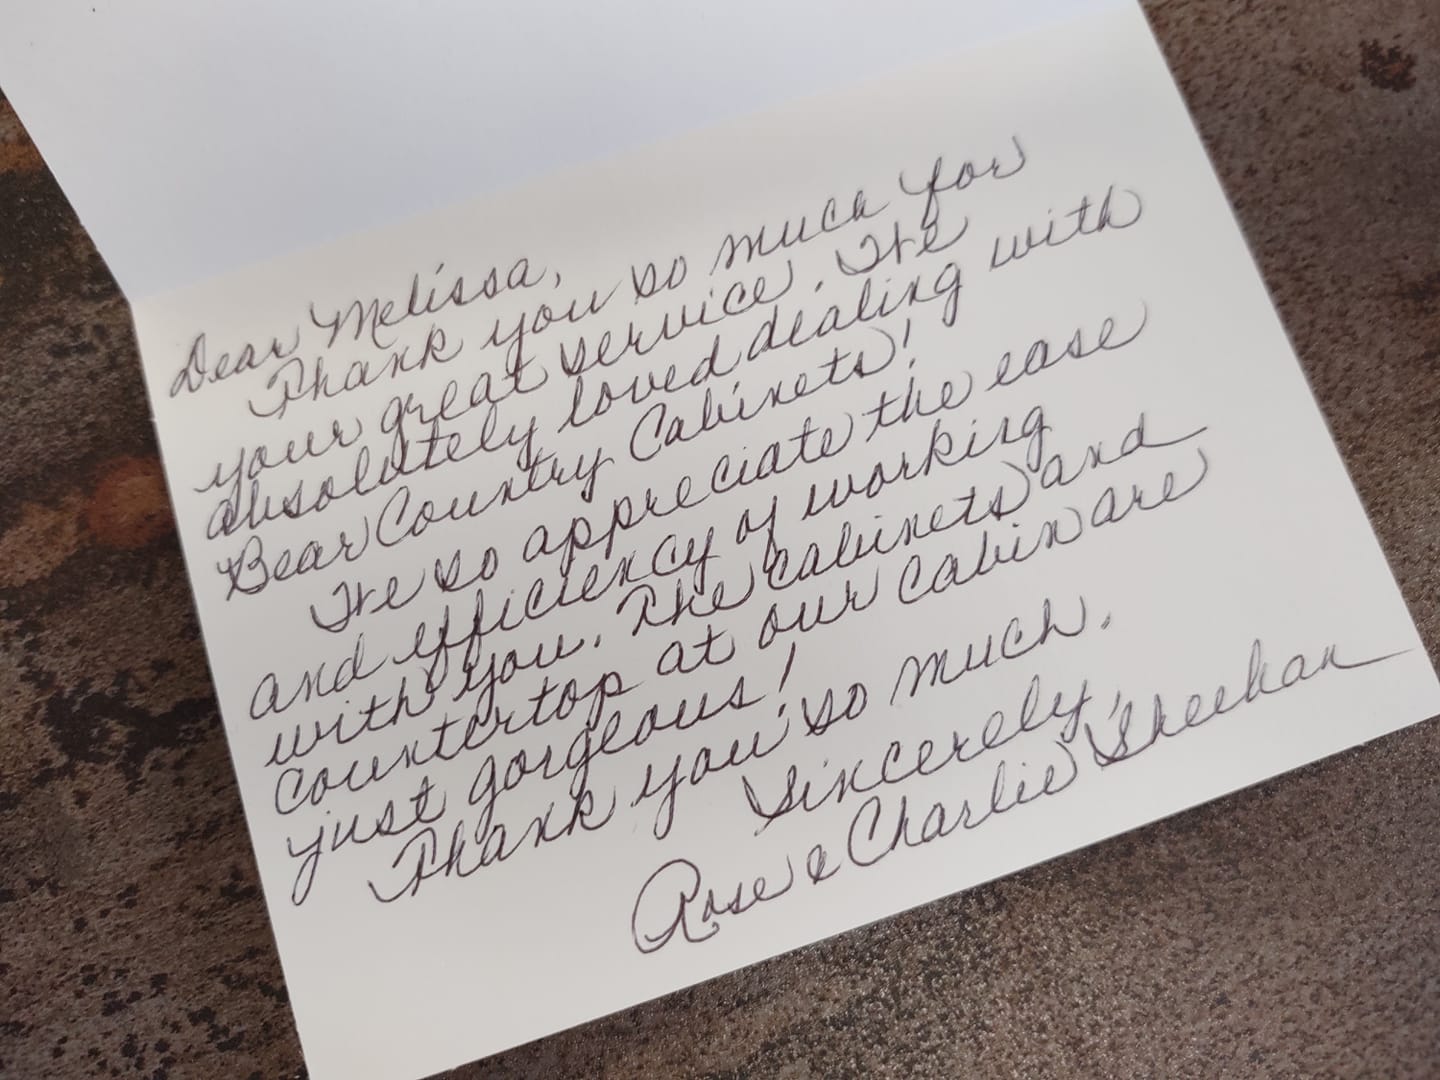 Dear Melissa,
Thank you so much for
your great service. We
absolutely loved dealing with
Bear Country Cabinets!
We so appreciate the ease
and efficiency of working
with you. The cabinets and
countertop at our cabin are
just gorgeous!
Thank you so much.
Sincerely,
Rose & Charlie Sheehan